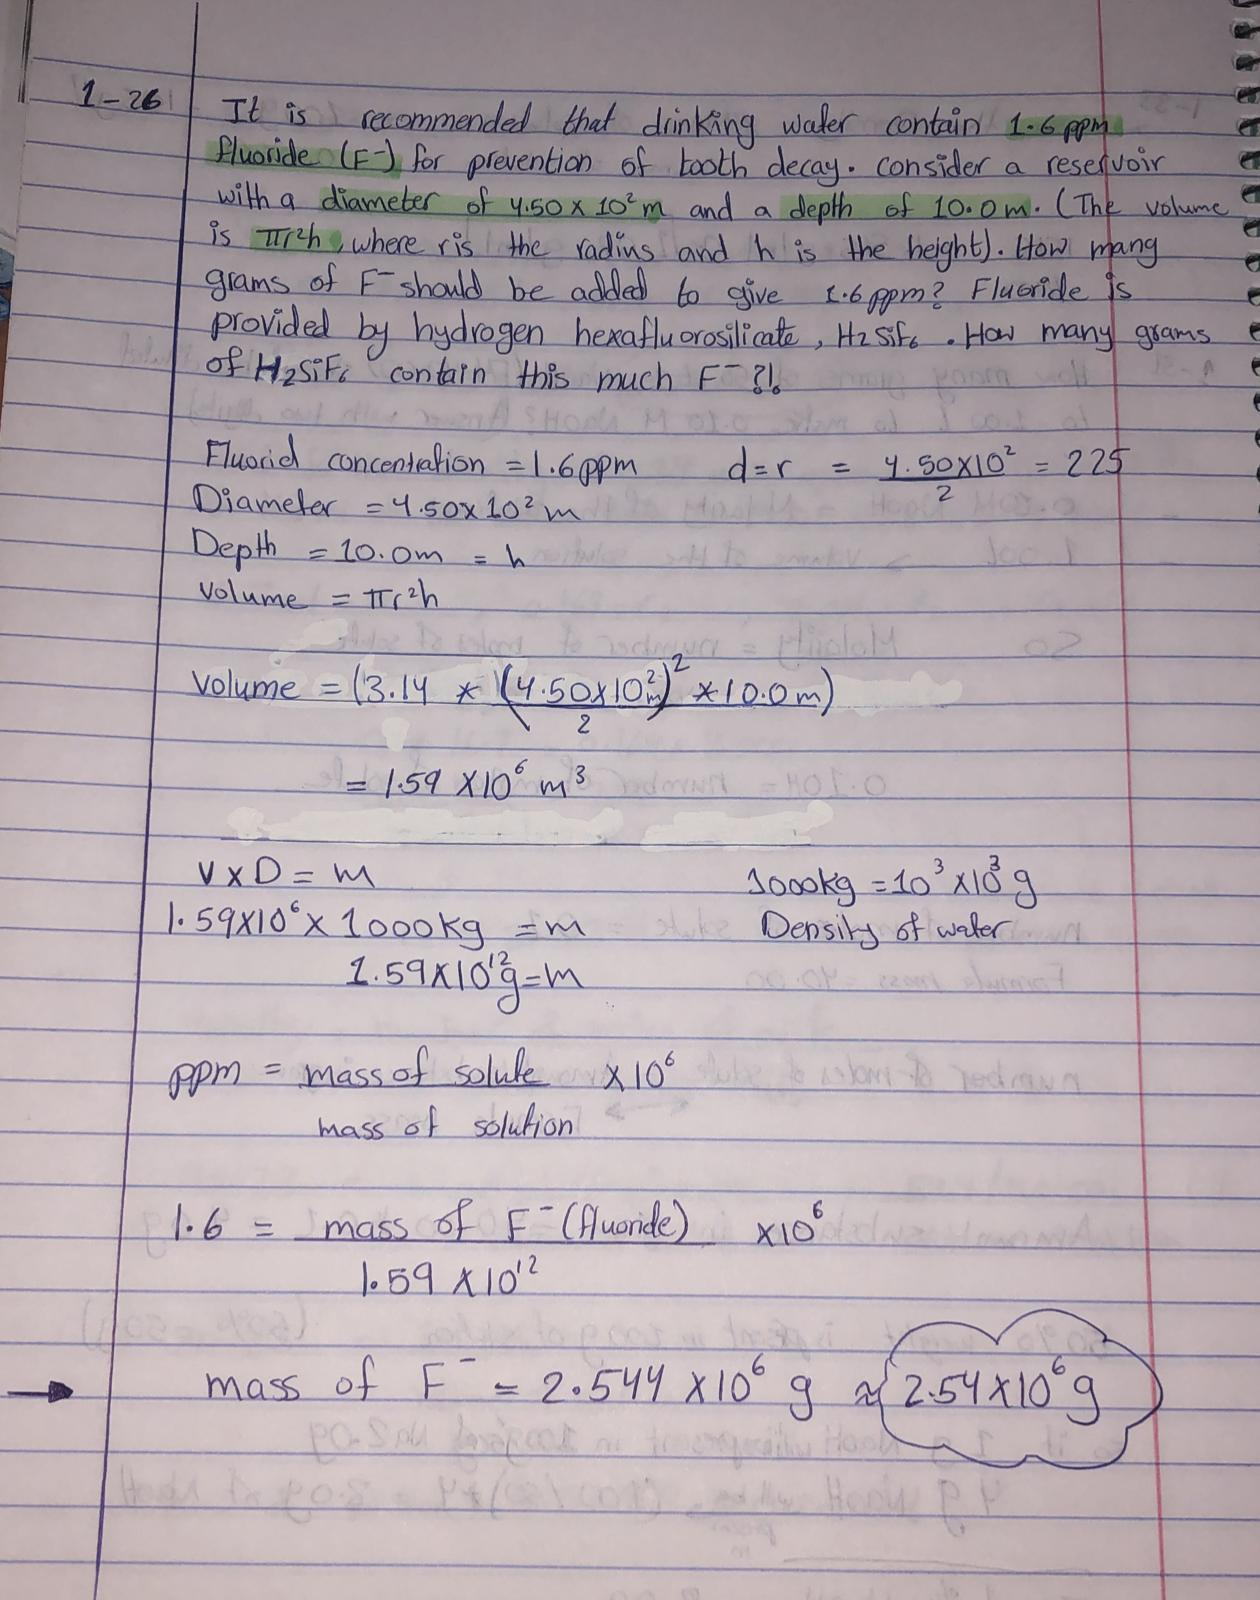 1-26 It is recommended that drinking water contain 1.6 ppm
fluoride (F⁻) for prevention of tooth decay. consider a reservoir
with a diameter of 4.50 x 10² m and a depth of 10.0 m. (The volume
is πr²h, where r is the radius and h is the height). How mang
grams of F⁻ should be added to give 1.6 ppm? Fluoride is
provided by hydrogen hexafluorosilicate, H2 SiF6 . How many grams
of H2SiF6 contain this much F⁻?!
Fluorid concentration = 1.6ppm d=r = 4.50x10² / 2 = 225
Diameter = 4.50x 10² m
Depth = 10.0m = h
Volume = πr²h
Volume = (3.14 * (4.50x10²m / 2)² * 10.0m)
= 1.59 x10⁶ m³
V x D = m 1000kg = 10³ x10³ g
1.59x10⁶ x 1000kg = m Density of water
1.59x10¹²g=m
ppm = mass of solute x10⁶
mass of solution
1.6 = mass of F⁻ (fluoride) x10⁶
1.59 x 10¹²
→ mass of F⁻ = 2.544 x10⁶ g ≈ 2.54x10⁶g